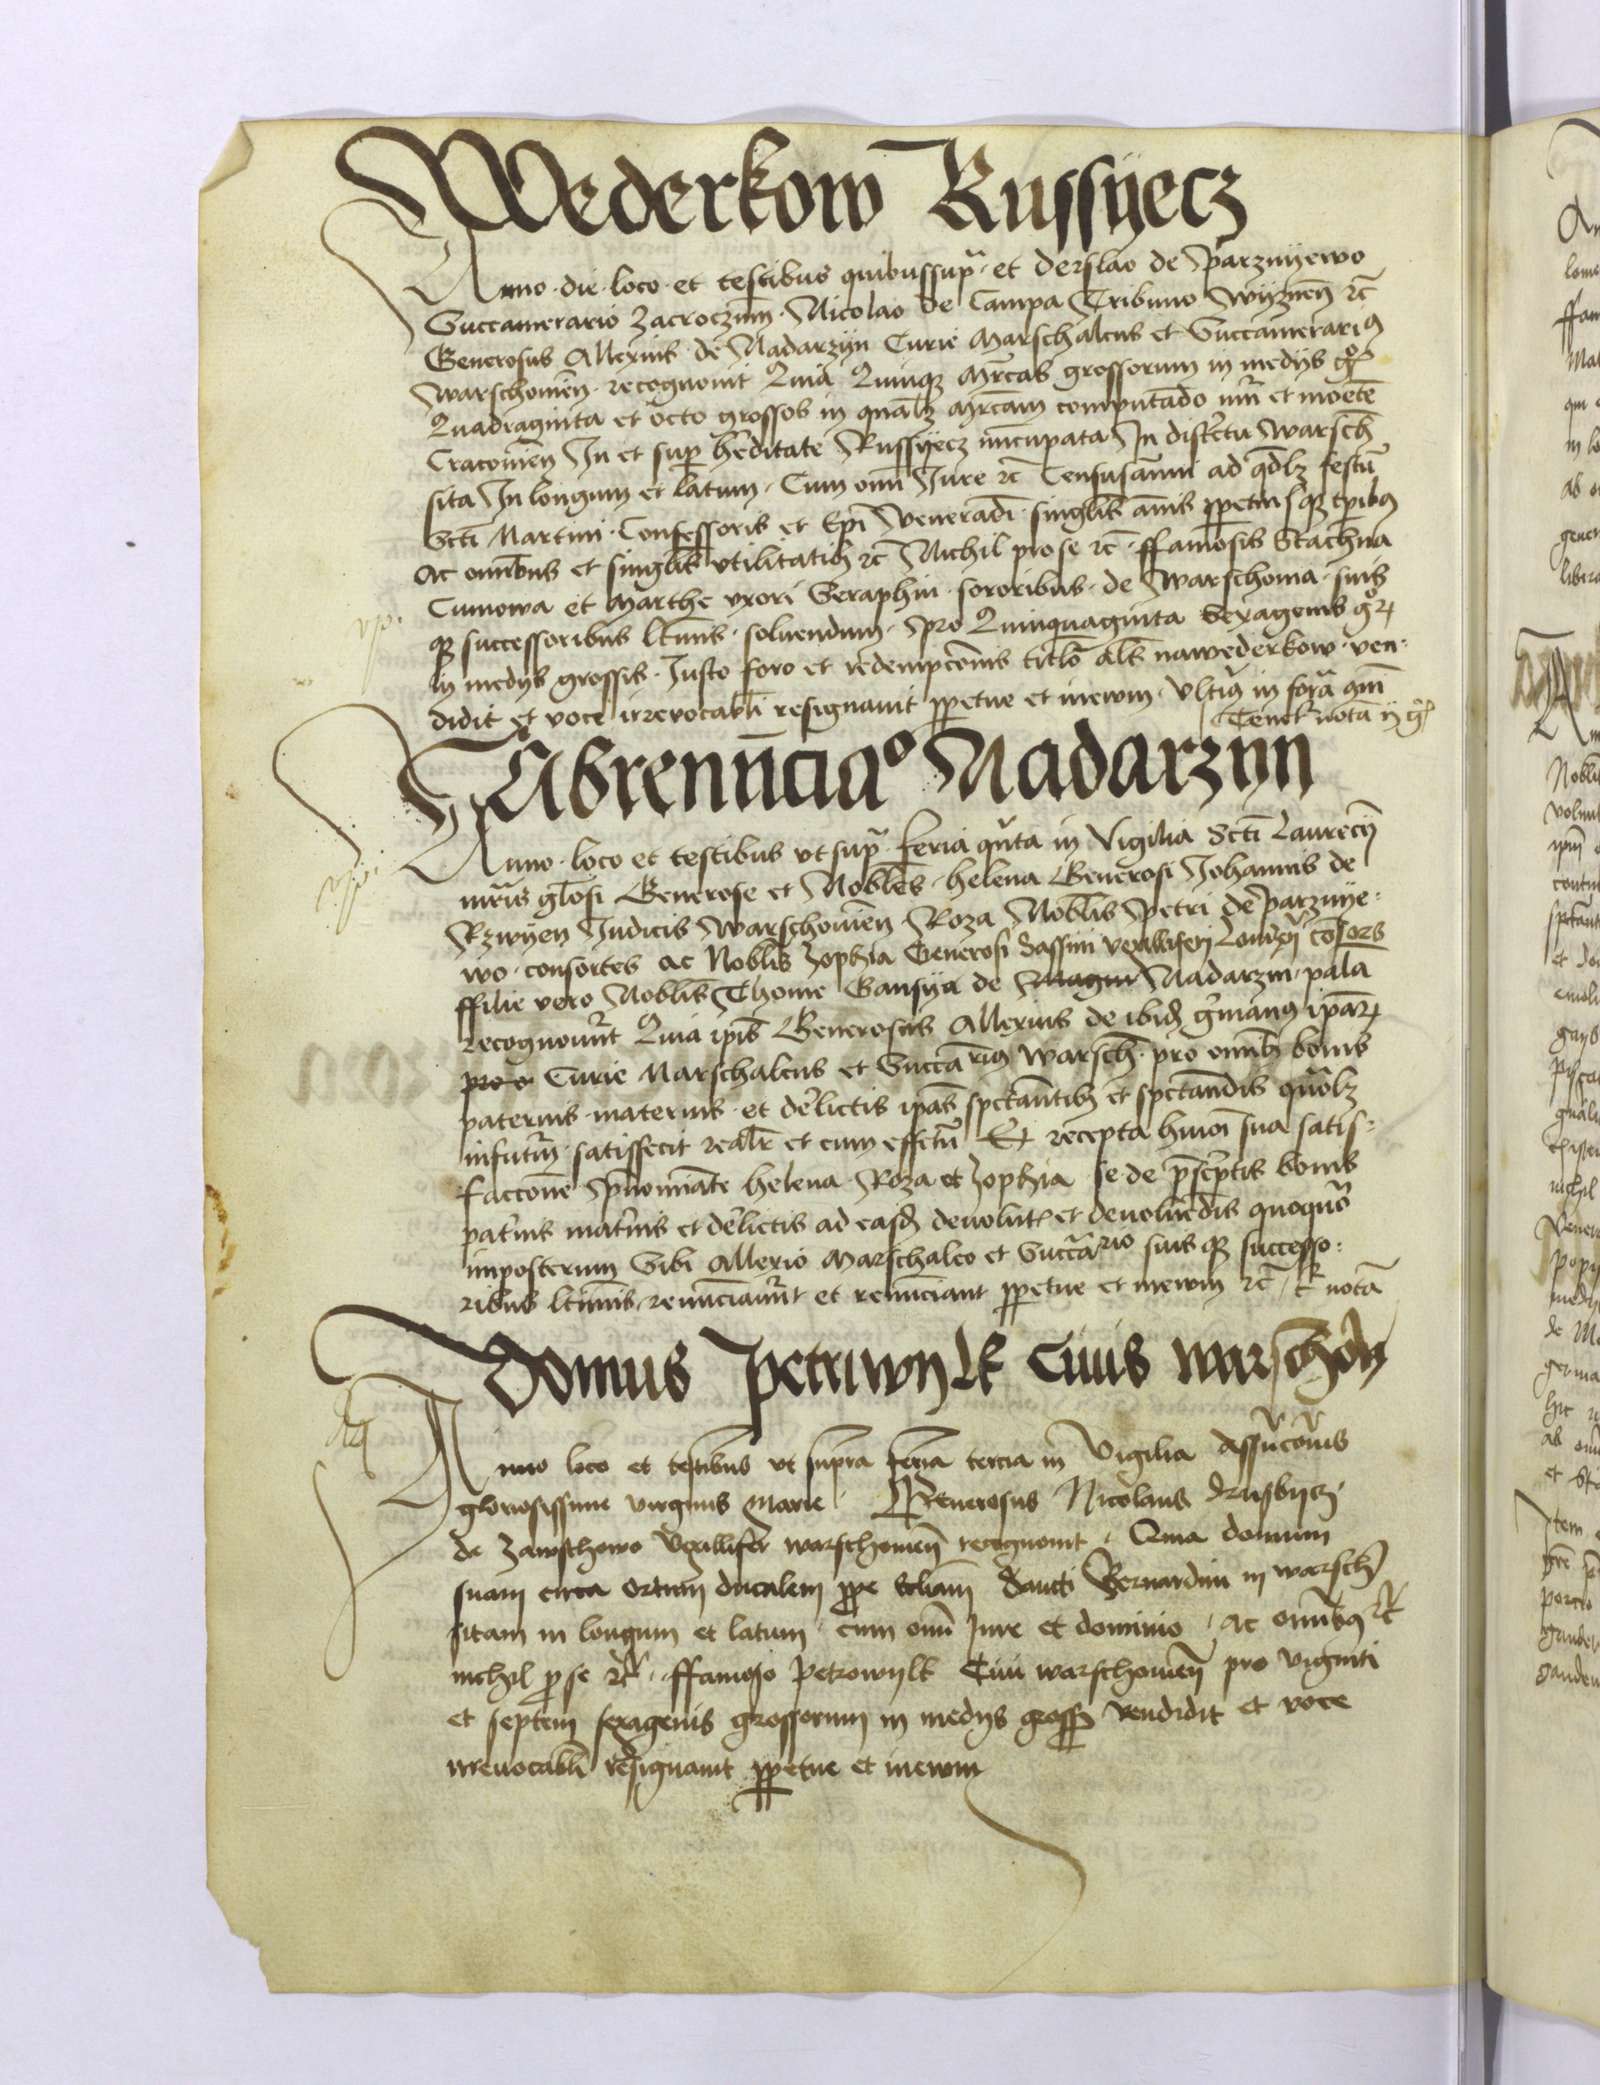 Wederkow Russyecz
Anno · die · loco · et testibus quibussupra · et Derslao de Parznyewo
Succamerario Zacroczimen · Nicolao de Campa Tribuno Wyznen etc
Generosus Allexius de Nadarzyn Curie Marschalcus et Succamerarius
Warschowien · recognovit Quia Quinque Mrcas grossorum in medys gr
Quadraginta et octo grossos in qualz Mrcam computado nri et monete
Cracovien In et sup hereditate Russyecz nuncupata In districtu Warsch
sita In longum et latum · Cum omni Jure etc Censusannui ad qdlz festu
Scti Martini Confessoris et Epi Veneradi singlis annis ppetuisque tpibus
ac omnibus et singlis vtilitatibus etc Nichil pro se etc · ffamosis Stachna
Cunowa et Marthe vxori Seraphin · sororibus · de Warschowia · suis
que successoribus ltimis · soluendum · pro Quinquaginta Sexagenis gror
in medys grossis · Justo foro et redempconis titlo als nawederkow · ven-
didit et voce irrevocabli resignavit ppetue et inewm · Vltius in forma qm
Tenetur nota ij gr
Abrenuncciao Nadarzyn
Anno · loco et testibus vt supra feria quarta in Vigilia Scti Laurecij
mris glosi Generose et Nobles · helena Generosi Johannis de
Rzwyen Judicis Warschowien Roza Noblis Petri de parznye-
wo · consortes ac Noblis Zophia Generosi Sassini vexilliferi consors
ffilie vero Noblis Thome Gansya de Nadarzin · pala
recognouert Quia ipis Generosus Allexius de ibidem grmanus ipar
pro o Curie Marschalcus et Succarius Warsch · pro omnibus bonis
paternis · maternis · et derlictis ipas spectantibus et spectandis qualz
infuturum · satisfecit realr et cum effectu Et recepta humoi sua satis-
faccione pnominate helena Roza et Zophia se de prescriptis bonis
paternis maternis et derlictis ad easdem devolut et devoluendis quoquo
imposterum Sibi Allexio Marschalco et Succario suis que successo-
ribus ltimis · renuncciauerunt et renuncciant ppetue et inewm etc · tr nota
Domus petriwylk Civis warschowien
Anno loco et testibus vt supra feria tercia in Vigilia assupcois
gloriosissime virginis marie · Generosus Nicolaus Drusbycz
de Zawschowo Vexillifer warschowien recognovit · Quia domum
suam circa ortum ducalem ppe ecliam Sancti Bernardini in warsch
sitam in longum et latum · cum omi Jure et dominio · ac omibus etc
nichil pro se etc · ffamoso Petrowylk Civi warschowien pro viginti
et septem sexagenis grossorum in medys gross vendidit et voce
irreuocabli resignauit ppetue et inewm